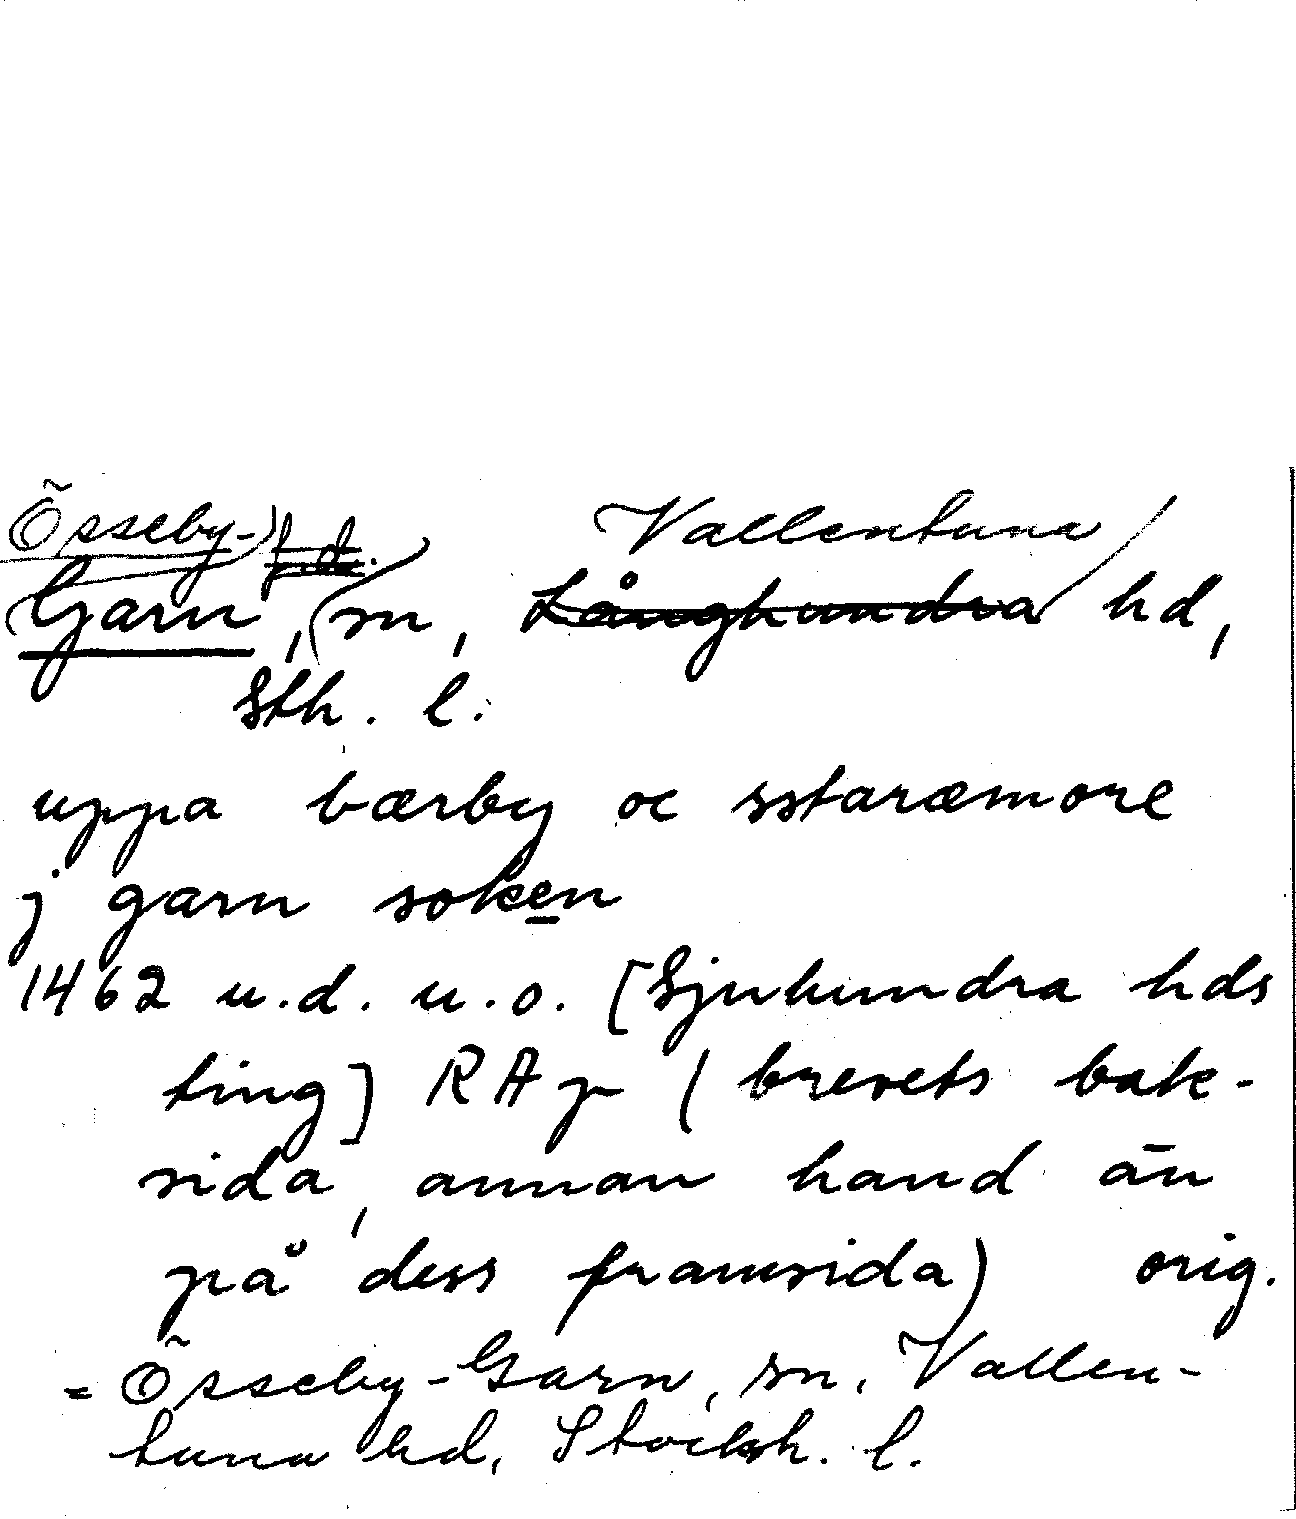 Össeby- f.d. Vallentuna
Garn, sn, Långhundra hd,
Sth. l.
uppa bærby oc sstaræmore
j garn soken
1462 u.d. u.o. [Sjuhundra hds
ting] RAp (brevets bak-
sida, annan hand än
på dess framsida) orig.
= Össeby-Garn, sn, Vallen-
tuna hd, Stockh. l.